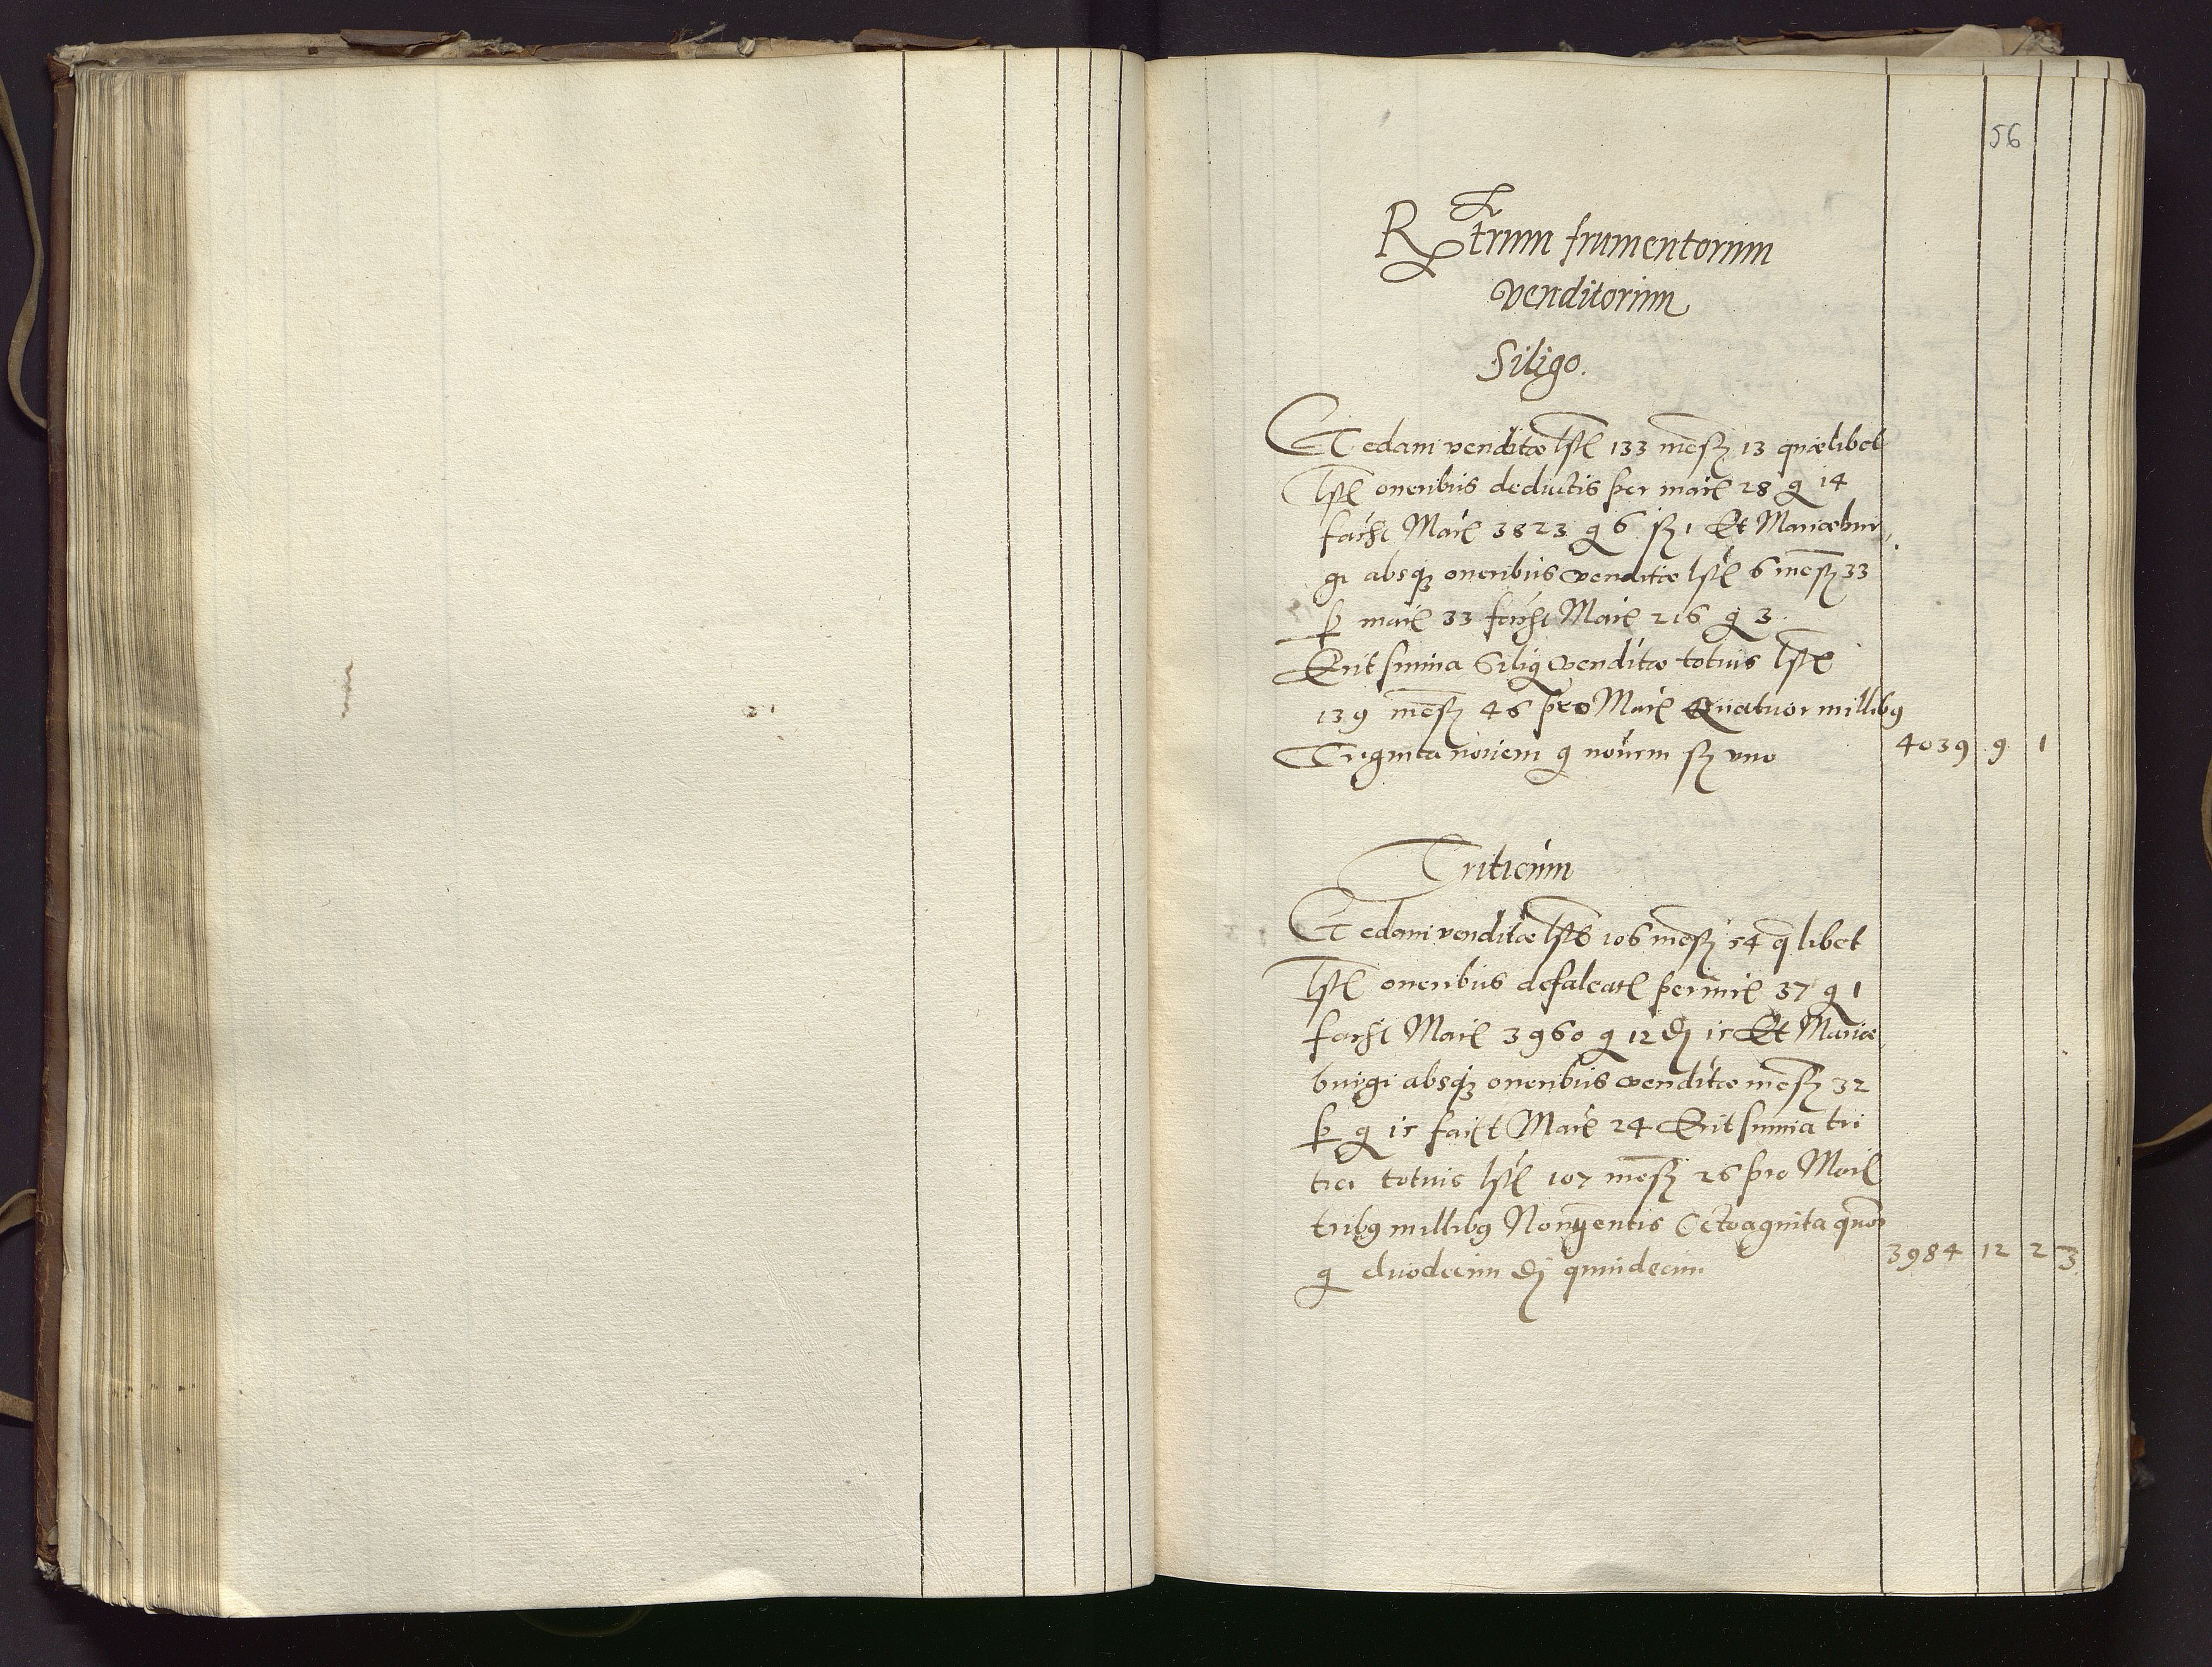 56
Rtrum frumentorum
venditorum
Siligo.
Gedani venditæ lstͣ 133 mensͣ 13 quælibet
lstͣ oneribus deductis per marͣ 28 g 14
facit Marͣ 3823 g 6 sͣ 1 Et Mariæbur,
gi absqz oneribus venditæ lstͣ 6 mensͣ 33
p marͣ 33 facit Marͣ 216 g 3.
Erit summa Silig venditæ totius lstͣ
139 mensͣ 46 pro Marͣ Quatuor millibus
Triginta novem g novem sͣ uno
4039 9 1
Triticum
Gedani venditæ lstͣ 106 mensͣ 54 q̄libet
lstͣ oneribus defalcatͣ per mrͣ 37 g 1
facit Marͣ 3960 g 12 d 15 Et Mariæ
burgi absqz oneribus venditæ mensͣ 32
p g 15 facit Marͣ 24 Erit summa tri
tici totius lstͣ 107 mensͣ 26 pro Marͣ
tribus millibus Nongentis Octoaginta quor
g duodecim d quindecim
3984 12 2 3